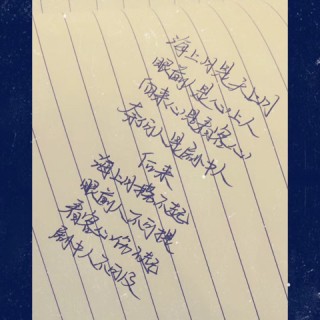 海上月是天上月
眼前人是心上人
向来心是看客心
奈何人是剧中人
后来
海上月捞不起
眼前人不可提
看客心伤不起
剧中人不可及